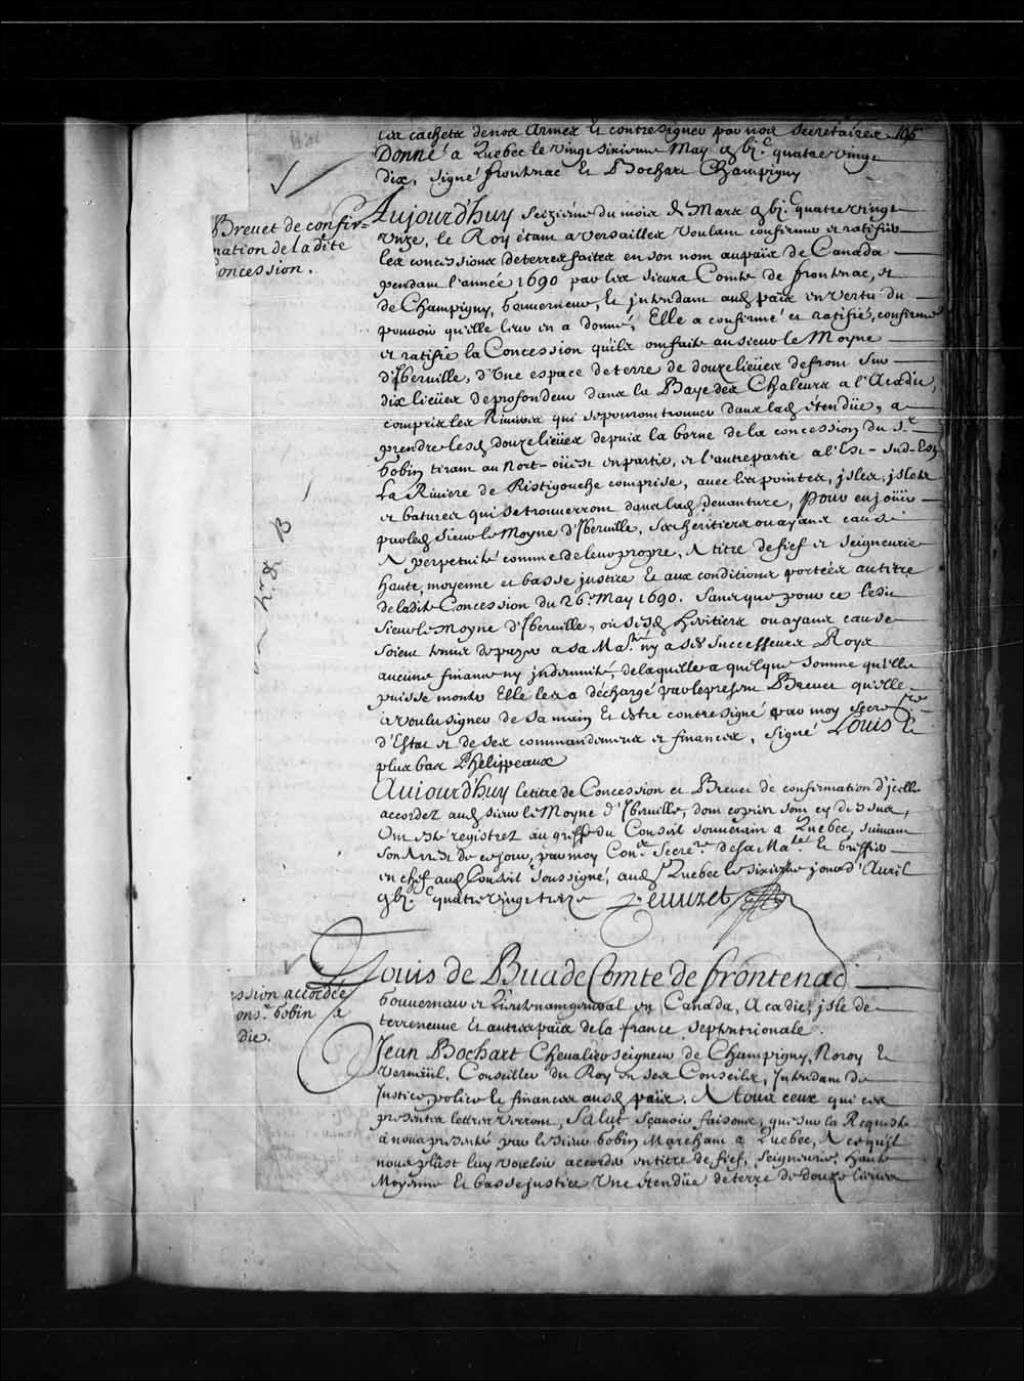 les cachets de nos Armes et contresigner par nos Secretaires 105
Donné a Quebec le vingt sixieme May gbj.c quatre vingt
dix, signé frontenac et Bochart Champigny
Brevet de confir-
mation de la d.te
Concession.
Aujourd'huy Seiziéme du mois de Mars gbj.c quatre vingt
unze, le Roy étant a Versailles Voulant confirmer et ratifier
les concessions de terres faites en son nom au païs de Canada
pendant l'année 1690 par les sieurs Comte de frontenac, et
de Champigny, Gouverneur, et Jntendant aud païs en vertu du
pouvoir qu'elle leur en a donné, Elle a confirmé et ratifié, confirme
et ratifie la Concession qu'ils ont faite au sieur le Moyne
d'Jberville, d'Vne espace de terre de douze lieües de front sur
dix lieües de profondeur dans la Baye des Chaleurs a l'Acadie,
compris les Rivieres qui se pouront trouver dans lad étendüe, a
prendre lesd douze lieües depuis la borne de la concession du S.r
Gobin tirant au Nort-oüest en partie, et l'autre partie a l'Est-Sud-Est
La Riviere de Ristigouche comprise, avec les pointes, jsles, jslets
et batures qui se trouverront dans lad devanture, pour en joüir
par led Sieur le Moyne d'Jberville, ses héritiers ou ayans cause
A perpetuité comme de leur propre, A titre de fief et Seigneurie
haute, moyenne et basse justice et aux conditions portées au titre
de lad.te Concession du 26.e May 1690. Sans que pour ce led.t
Sieur le Moyne d'Jberville, ou sesd héritiers ou ayans cause
soient tenus de payer a sa Ma.té ny a ses successeurs Roys
aucune finance ny jndemnité, de laquelle a quelque somme qu'elle
puisse monter Elle les a déchargé par le present Brevet qu'elle
a voulu signer de sa main Et estre contresigné par moy Secre.re
d'Estat et de ses commandemens et finances, signé Louis Et
plus bas Phelippeaux
Aujourd'huy le titre de Concession et Brevet de confirmation d'jcelle
accordez aud sieur le Moyne d'Jberville, dont copies sont cy dessus,
Ont esté registrez au greffe du Conseil souverain a Quebec, suivant
son Arrest de ce jour, par moy Con.er Secre.re de sa Ma.té et Greffier
en chef aud Conseil soussigné, aud Quebec le sixiesme jour d'Avril
gbj.c quatre vingt treize Peuuret
ession accordée
ons.r Gobin a
die.
Louis de Buade Comte de frontenac
Gouverneur et Lieutenant general en Canada, Acadie, jsle de
terreneuve Et autres païs de la france Septentrionale.
Jean Bochart Chevalier seigneur de Champigny, Noroy Et
Verneüil, Conseiller du Roy en ses Conseils, Jntendant de
Justice, police et finances aud païs, A tous ceux qui ces
presentes lettres verront, Salut sçavoir faisons, que sur la Requeste
a nous presentée par le sieur Gobin Marchant a Quebec, A ce qu'il
nous plust luy vouloir accorder en titre de fief, Seigneurie, haute
Moyenne Et basse justice Vne étendüe de terre de douze lieües